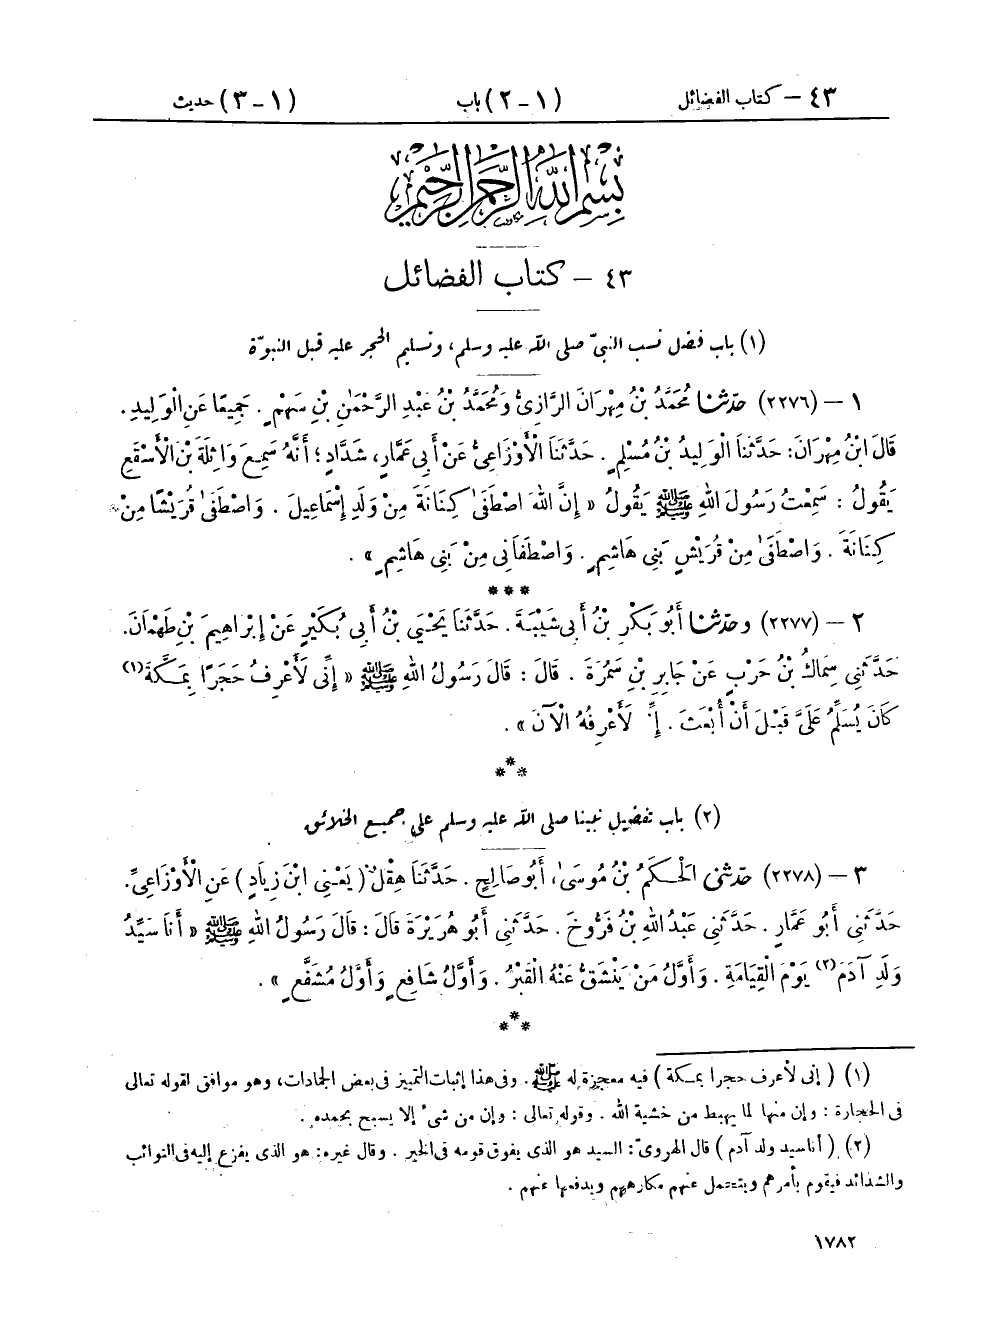 ٤٣ – كتاب الفضائل (١ - ٢) باب (١ - ٣) حديث
بسم الله الرحمن الرحيم
٤٣ – كتاب الفضائل
(١) باب فضل نسب النبيّ صلى الله عليه وسلم، وتسليم الحجر عليه قبل النبوّة
١ – (٢٢٧٦) حدّثنا مُحَمَّدُ بْنُ مِهْرَانَ الرَّازِيُّ وَمُحَمَّدُ بْنُ عَبْدِ الرَّحْمَٰنِ بْنِ سَهْمٍ. جَمِيعًا عَنِ الْوَلِيدِ.
قَالَ ابْنُ مِهْرَانَ: حَدَّثَنَا الْوَلِيدُ بْنُ مُسْلِمٍ. حَدَّثَنَا الْأَوْزَاعِيُّ عَنْ أَبِي عَمَّارٍ، شَدَّادٍ؛ أَنَّهُ سَمِعَ وَاثِلَةَ بْنَ الْأَسْقَعِ
يَقُولُ: سَمِعْتُ رَسُولَ اللهِ ﷺ يَقُولُ « إِنَّ اللهَ اصْطَفَىٰ كِنَانَةَ مِنْ وَلَدِ إِسْمَاعِيلَ. وَاصْطَفَىٰ قُرَيْشًا مِنْ
كِنَانَةَ. وَاصْطَفَىٰ مِنْ قُرَيْشٍ بَنِي هَاشِمٍ. وَاصْطَفَانِي مِنْ بَنِي هَاشِمٍ ».
***
٢ – (٢٢٧٧) وحدّثنا أَبُو بَكْرِ بْنُ أَبِي شَيْبَةَ. حَدَّثَنَا يَحْيَى بْنُ أَبِي بُكَيْرٍ عَنْ إِبْرَاهِيمَ بْنِ طَهْمَانَ.
حَدَّثَنِي سِمَاكُ بْنُ حَرْبٍ عَنْ جَابِرِ بْنِ سَمُرَةَ. قَالَ: قَالَ رَسُولُ اللهِ ﷺ « إِنِّي لَأَعْرِفُ حَجَرًا بِمَكَّةَ(١)
كَانَ يُسَلِّمُ عَلَيَّ قَبْلَ أَنْ أُبْعَثَ. لَأَعْرِفُهُ الْآنَ ».
***
(٢) باب تفضيل نبينا صلى الله عليه وسلم على جميع الخلائق
٣ – (٢٢٧٨) حدّثني الْحَكَمُ بْنُ مُوسَىٰ، أَبُو صَالِحٍ. حَدَّثَنَا هِقْلٌ ( يَعْنِي ابْنَ زِيَادٍ ) عَنِ الْأَوْزَاعِيِّ.
حَدَّثَنِي أَبُو عَمَّارٍ. حَدَّثَنِي عَبْدُ اللهِ بْنُ فَرُّوخَ. حَدَّثَنِي أَبُو هُرَيْرَةَ قَالَ: قَالَ رَسُولُ اللهِ ﷺ « أَنَا سَيِّدُ
وَلَدِ آدَمَ(٢) يَوْمَ الْقِيَامَةِ. وَأَوَّلُ مَنْ يَنْشَقُّ عَنْهُ الْقَبْرُ. وَأَوَّلُ شَافِعٍ وَأَوَّلُ مُشَفَّعٍ ».
***
(١) ( إني لأعرف حجرا بمكة ) فيه معجزة له ﷺ. وفي هذا إثبات التمييز في بعض الجمادات، وهو موافق لقوله تعالى
في الحجارة: وإن منها لما يهبط من خشية الله. وقوله تعالى: وإن من شيء إلا يسبح بحمده.
(٢) ( أنا سيد ولد آدم ) قال الهرويّ: السيد هو الذي يفوق قومه في الخير. وقال غيره: هو الذي يفزع إليه في النوائب
والشدائد فيقوم بأمرهم ويتحمل عنهم مكارههم ويدفعها عنهم.
١٧٨٢